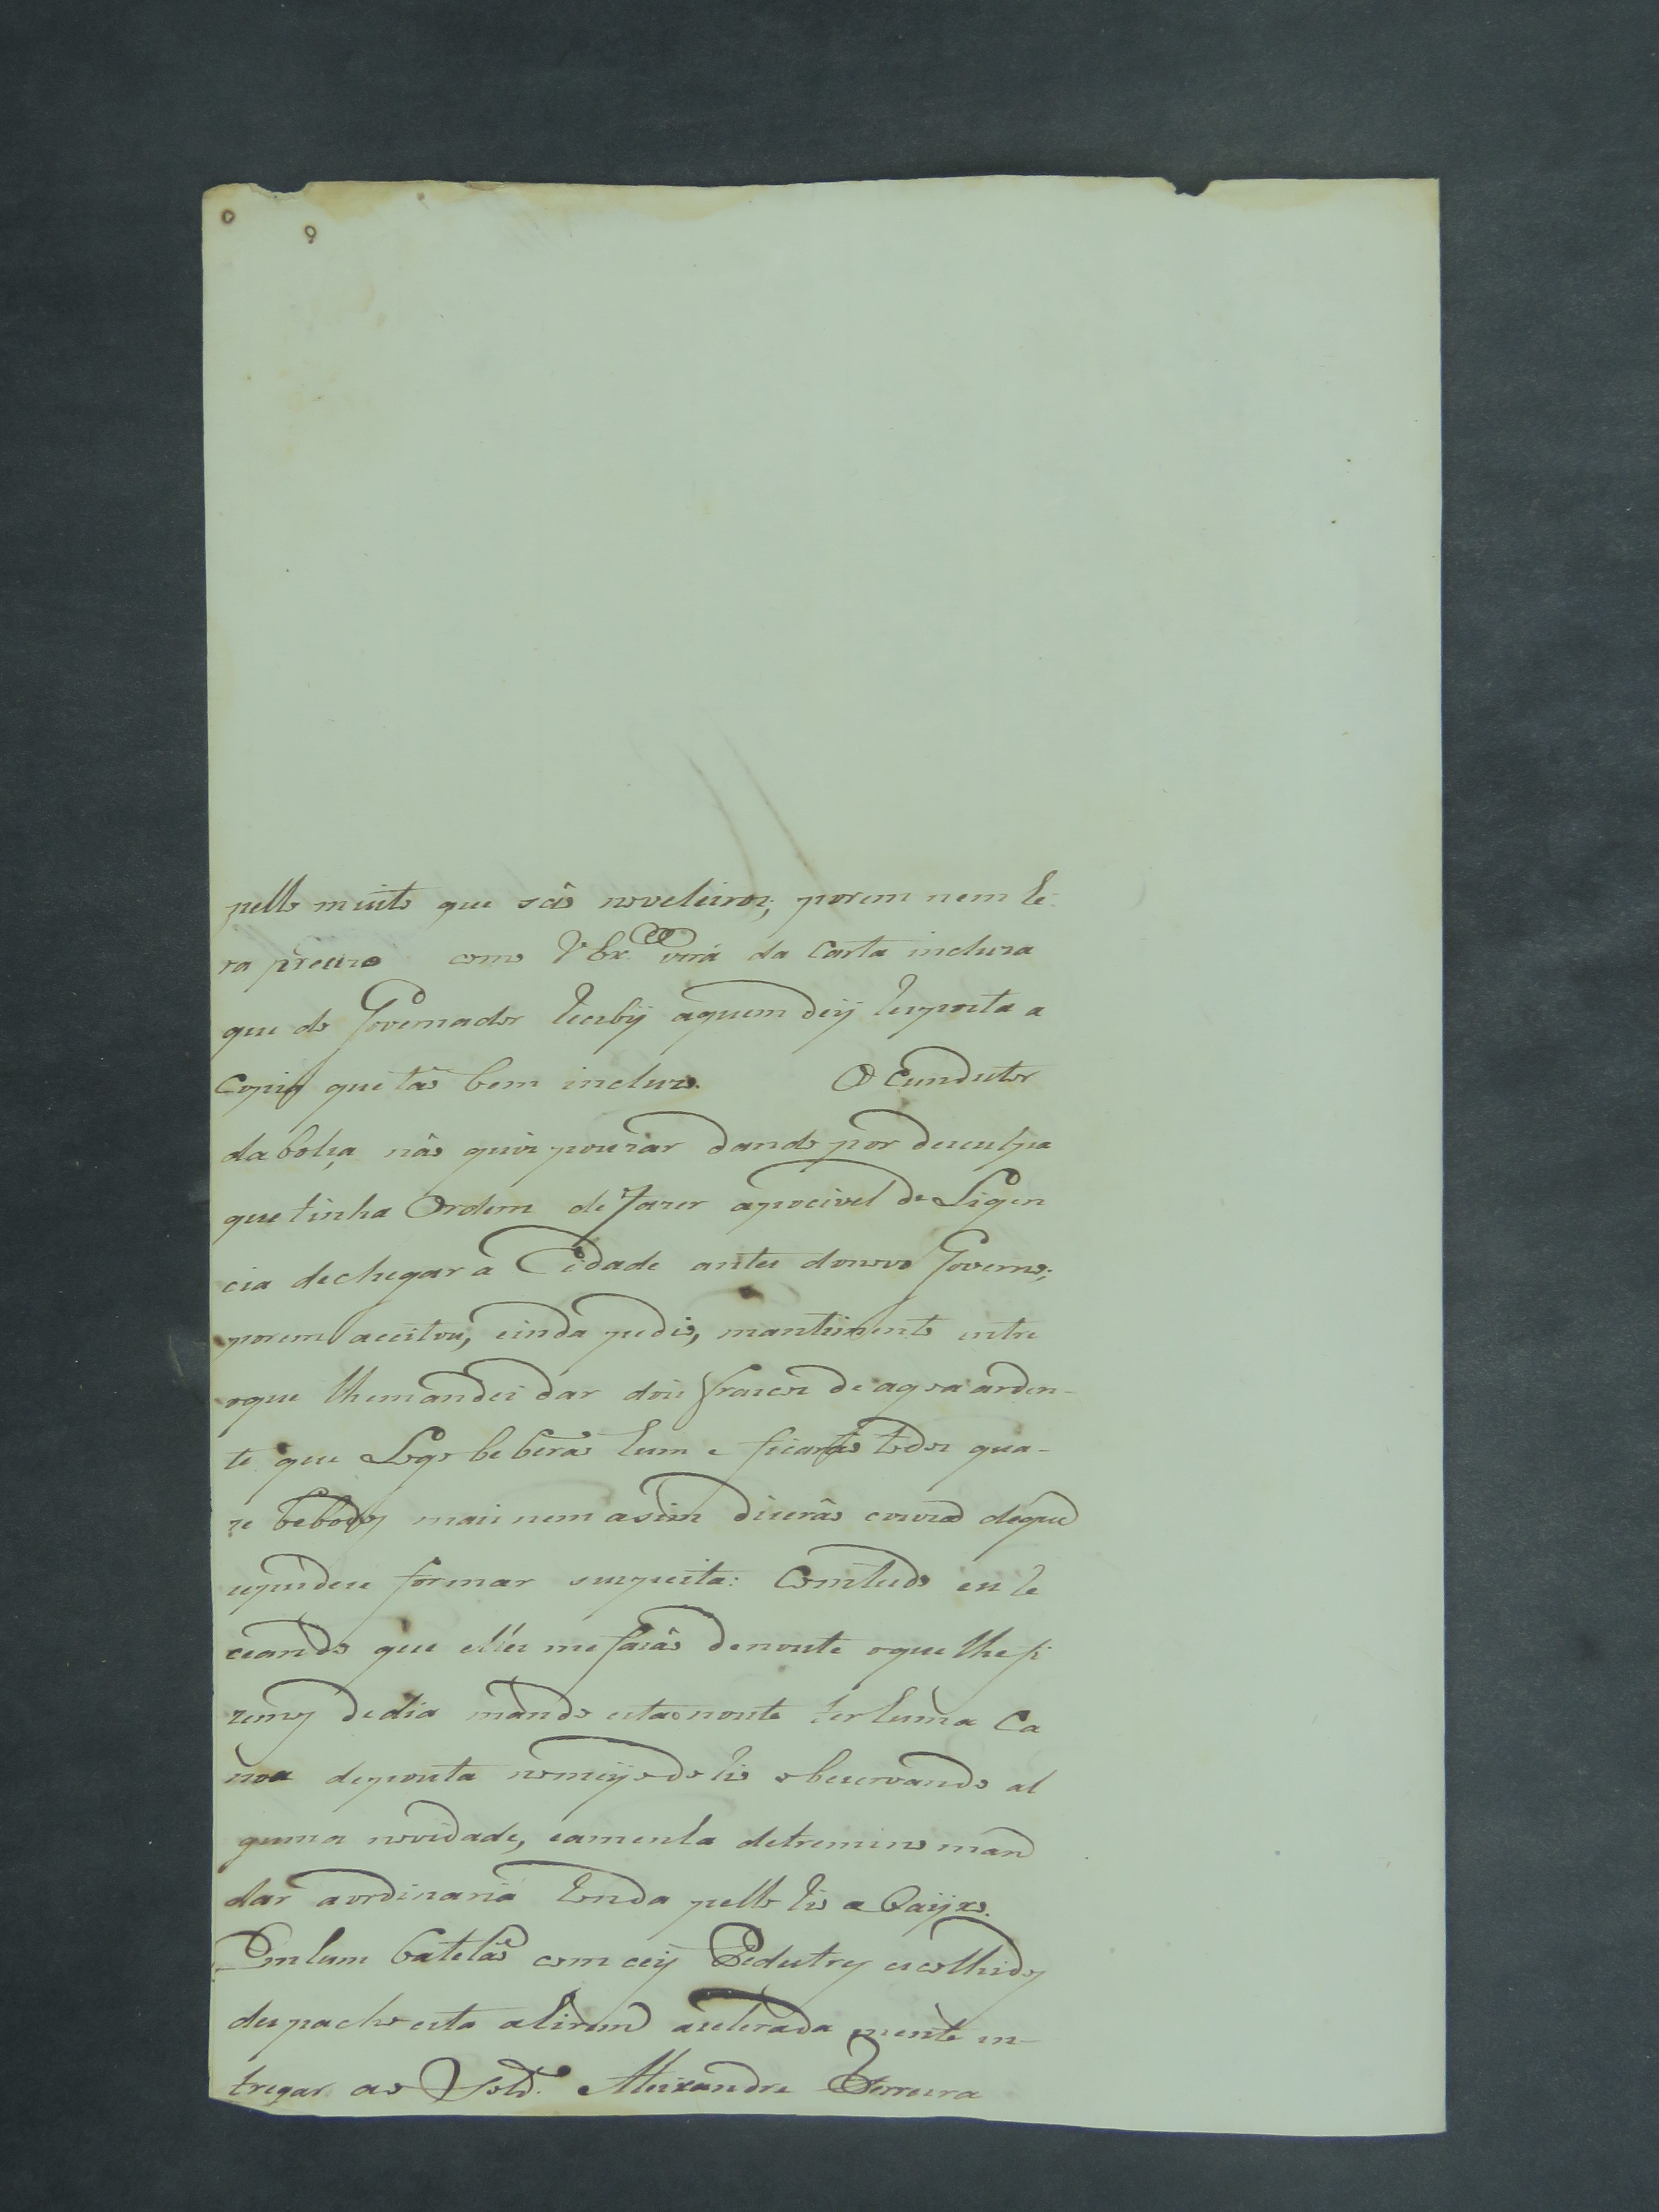 pello muito que são noveleiros; porem nem he
ra preuzo como V Ex.ª verá da Carta incluza
que do Governador Recebij aquem deij Resposta a
Copia que tão bem incluzo. O Cundutor
da bolça não quis pouzar dando por desculpa
que tinha Ordem de fazer apocivel de Ligen
cia de chegar a Cidade antes do novo Governo;
porem aceitou, einda pedio, mantimento entre
oque lhemandei dar dois frascos de agoa arden-
te que Logo beberão hum e ficarão todos qua-
ze bebodos mais nem asim dicerão couza deque
sepudese formar suspeita: Comtudo eu Re
ceando que elles me fação denoute oque lhe fi
zemos dedia mando esta noute ter huma Ca
noa deponta nomeijo do Rio observando al
guma novidade, eamenha detremino man
dar aordinaria Ronda pello Rio a Baijxo.
Em hum batelão com ceij Pedestres escolhidos
despacho esta a hirem aselerada mente en-
tregar ao Sold.º Aleixandre Ferreira